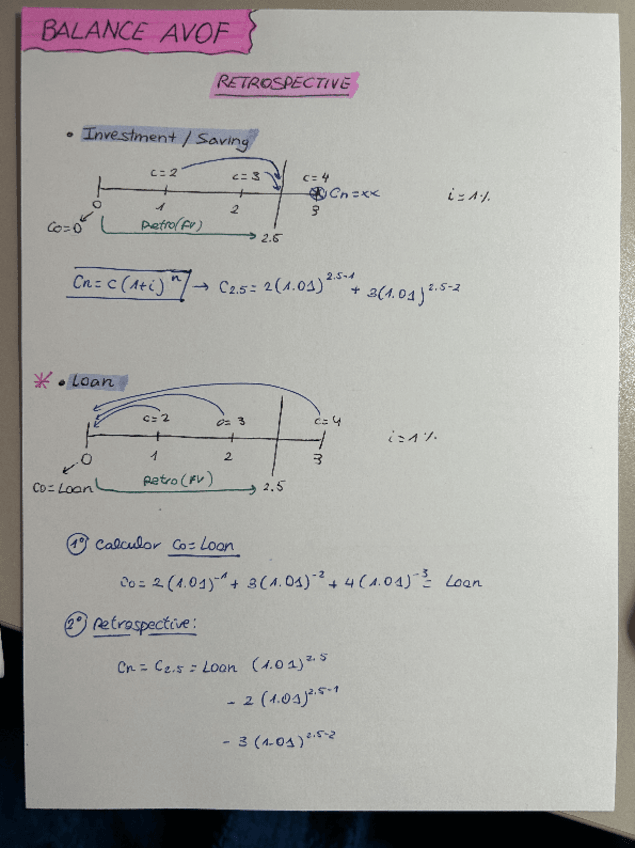 BALANCE AVOF
RETROSPECTIVE
• Investment / Saving
c=2 c=3 c=4
Cn=xx i=1%
0 1 2 3
Co=0 Retro(FV) 2.5
Cn=c(1+i)^n → C2.5=2(1.01)^2.5-1 + 3(1.01)^2.5-2
* • Loan
c=2 c=3 c=4
i=1%
0 1 2 3
Co=Loan Retro(FV) 2.5
1º Calcular Co=Loan
Co=2(1.01)^-1 + 3(1.01)^-2 + 4(1.01)^-3 = Loan
2º Retrospective:
Cn = C2.5 = Loan (1.01)^2.5
- 2(1.01)^2.5-1
- 3(1.01)^2.5-2